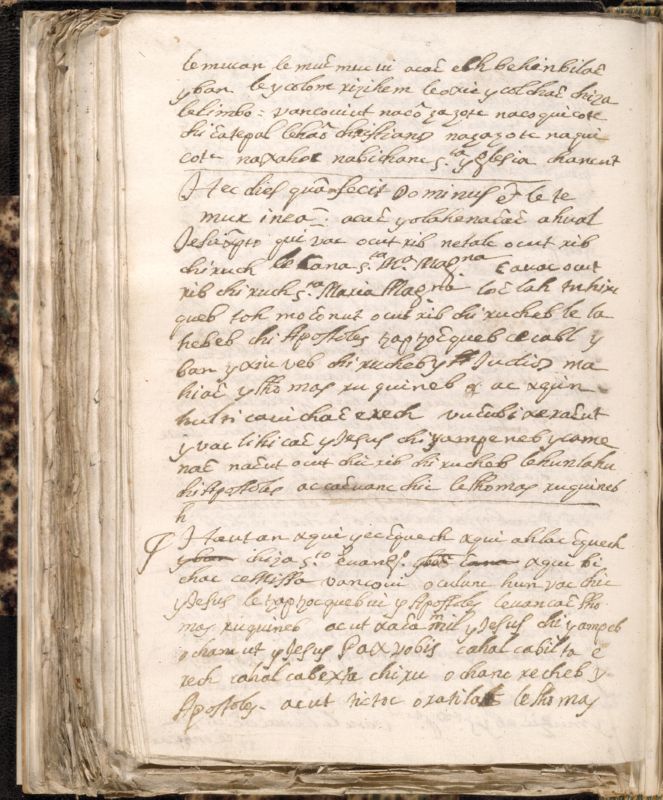 lemucan le muc̄ mucui acac̄ elh behenbilac̄
yban le ycolom xizihem leoxic ycolchac̄ chiza
lelimbo = vancouiut nacō zazote nacoquicote
chic̄atepal lehac̄ christiano nazazote naqui
cote naxahoc nabichanc s.ta yglesia chancut
Hec dies quā fecit Dominus et le te
mux inca acac̄ yolchenac̄ac̄ ahual
Jesuxp̄to qui vac ocut rib netalc ocut rib
chiruch le Cana s.ta M.a Magna cauac ocut
rib chi ruch s.ta Maria Magna loc̄ lah tuhixi
queb toh moconut ocut rib chi rucheb le la
hebeb chi Apostoles tzaptzoc̄queb cecabl y
ban yxiuveb chi rucheb y Judio ma
hiac̄ ythomas ruquineb ac xquin
hulticauichac̄ exech vuc̄ubixexac̄ut
yvac lihicac̄ yJesus chi yampeneb ycame
nac̄ nac̄ut ocut chic rib chi rucheb lehunlahu
chi Apostoles accac̄uanc chic lethomas xuquineb
h
Hautan xqui yecc̄quech xqui ahlac̄quech
chiza s.to euang.o xqui bi
chac cemissa vancoui oculanc hun vac chic
yJesus le tzaptzocquebui y Apostoles leuancac̄ tho
mas xuquineb acut xaca mil yJesus chi yampeb
ochancut yJesus Pax vobis cahal cabilta e
rech cahal cabexta chixu ochanc recheb y
Apostoles - acut tictoc oxatila lethomas